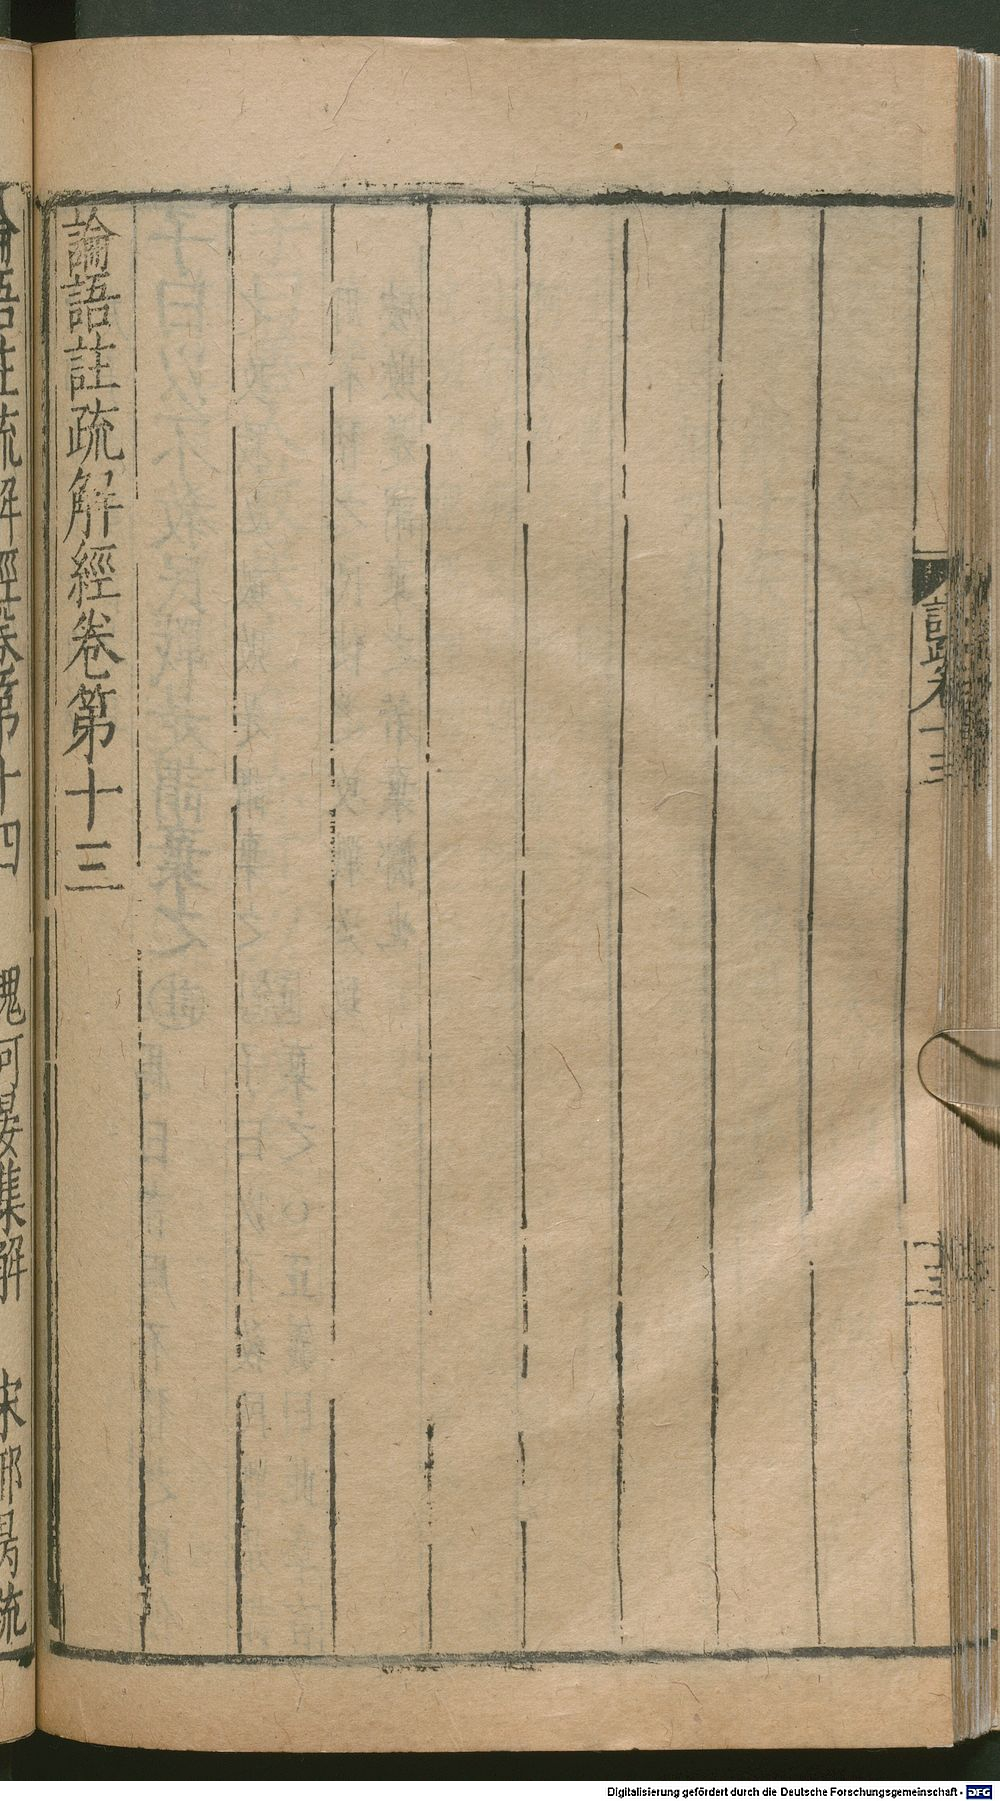 註疏卷十三
十三
論語註疏解經卷第十三
論語註疏解經卷第十四 魏何晏集解 宋邢昺疏
Digitalisierung gefördert durch die Deutsche Forschungsgemeinschaft - DFG